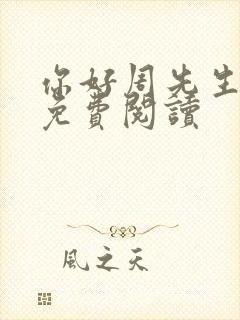 你好周先生
免費閱讀
風之天